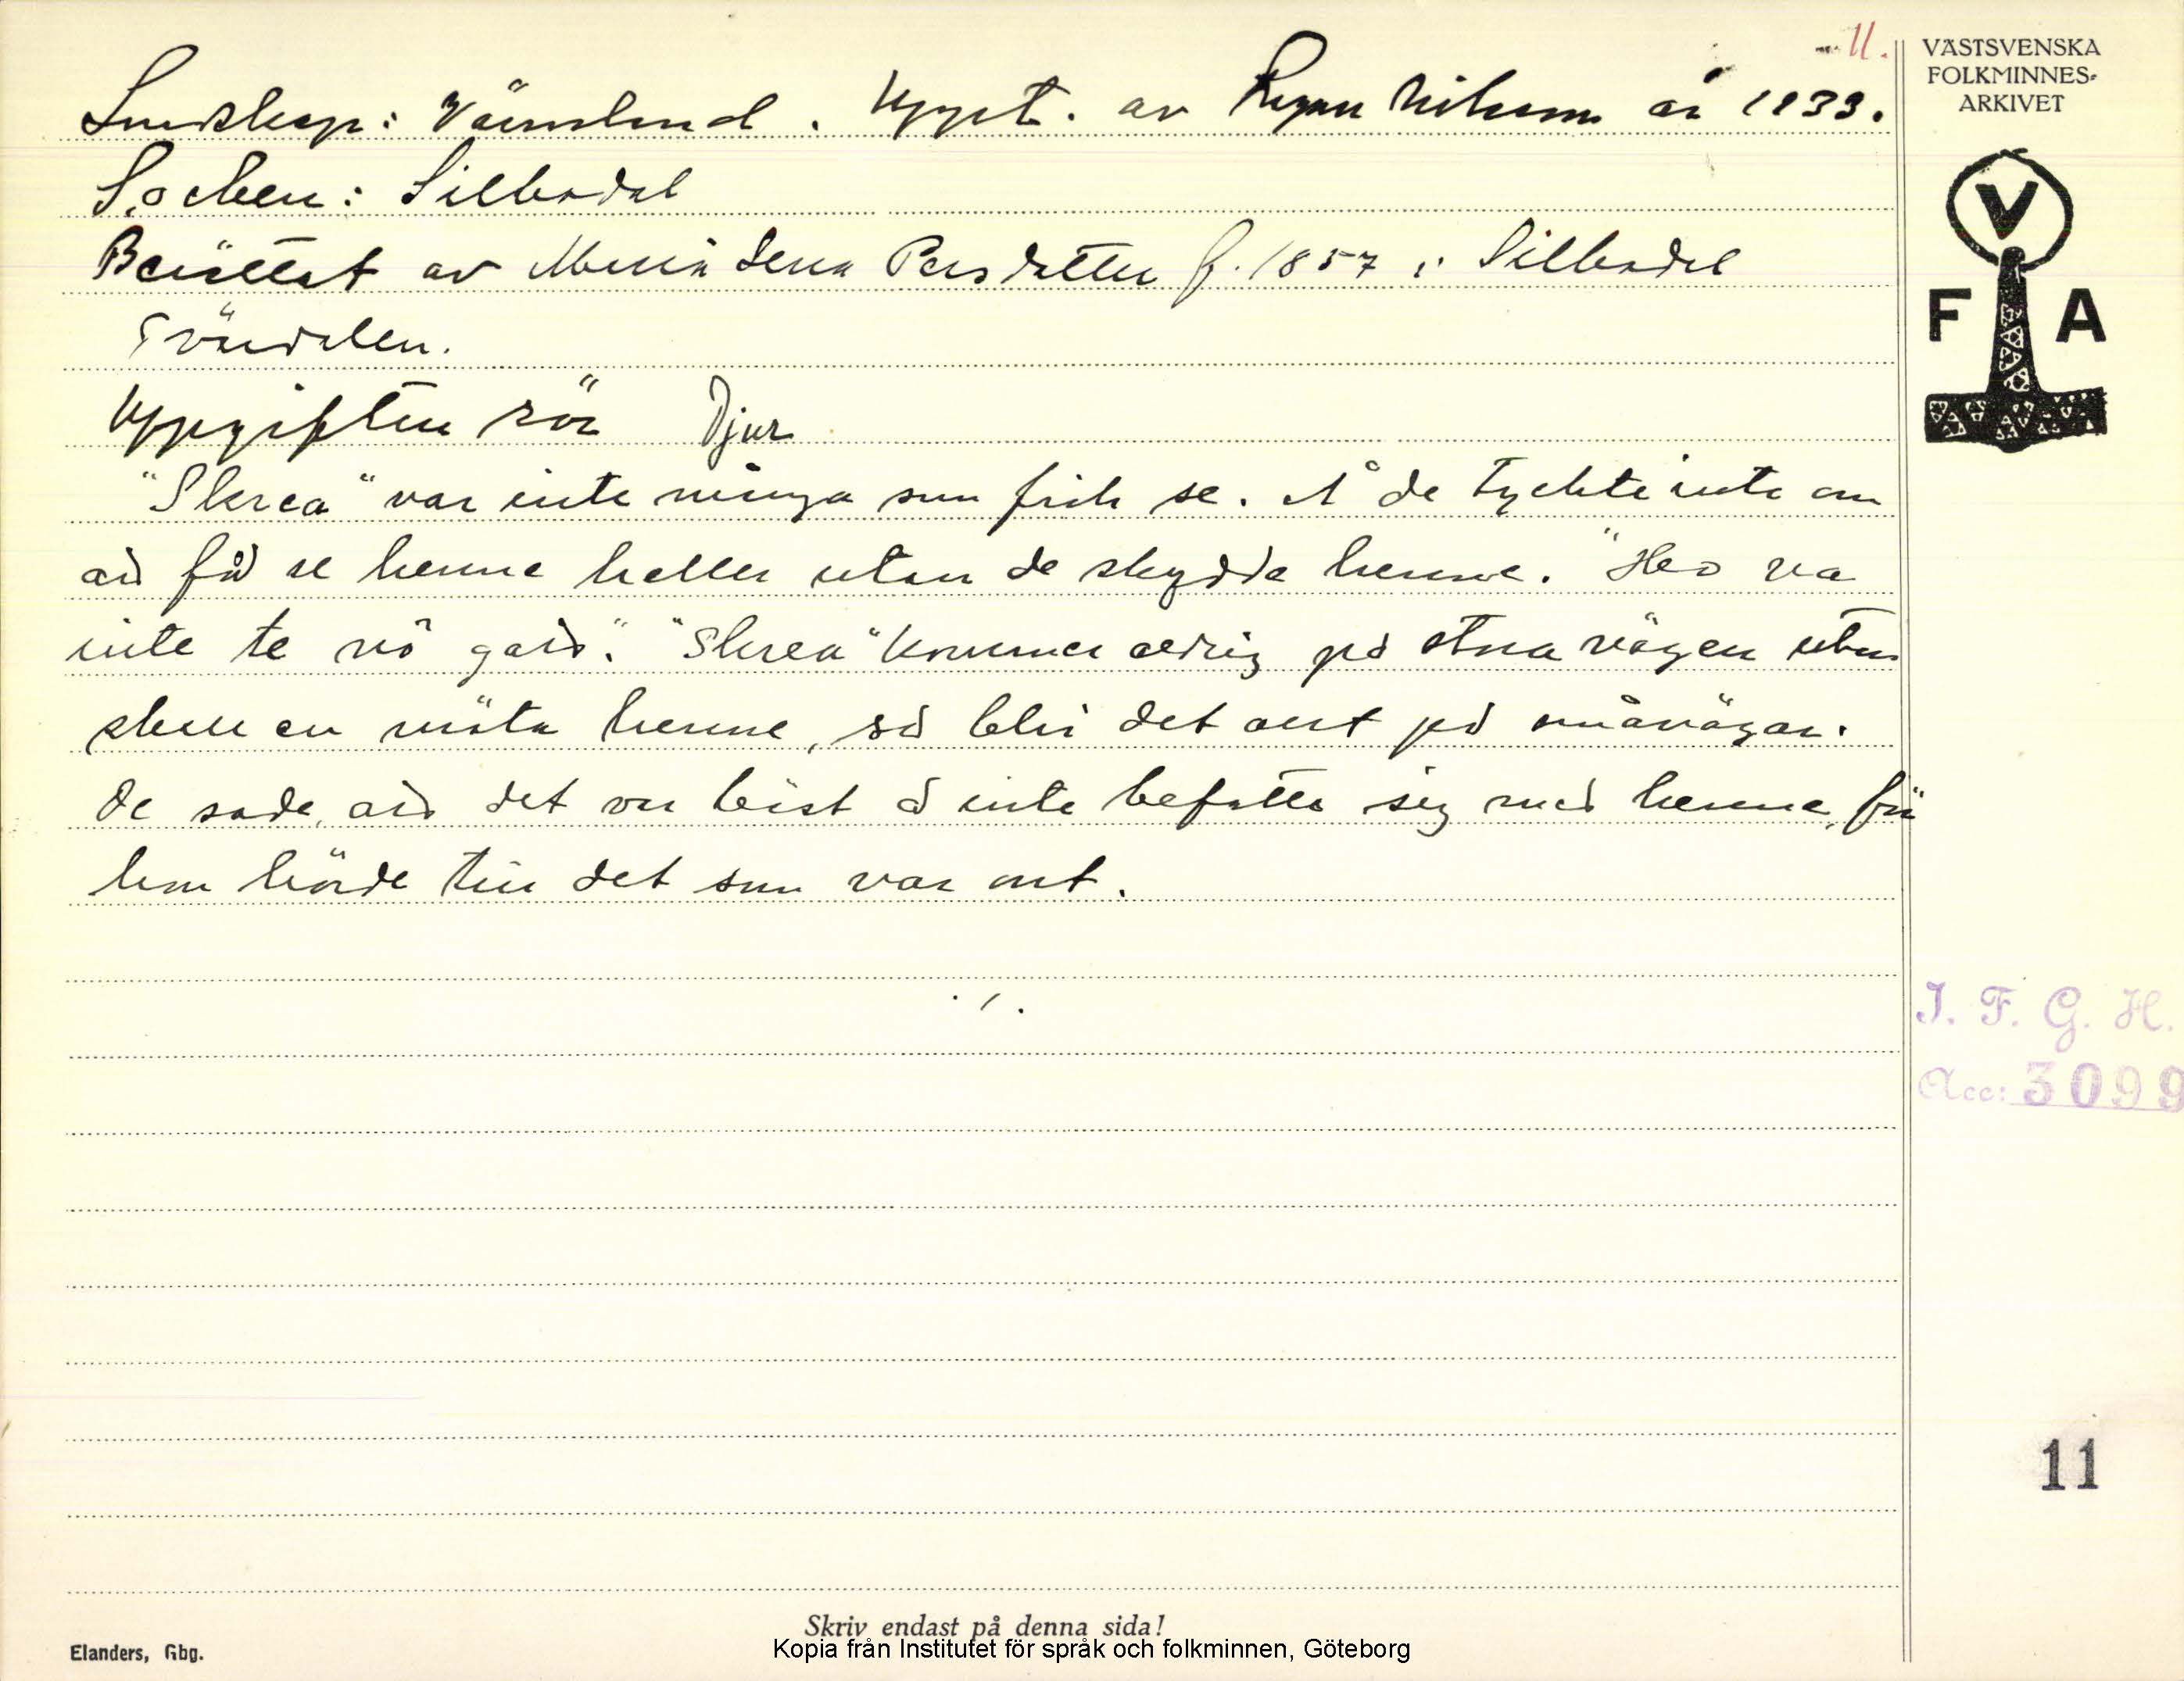 11.
VÄSTSVENSKA
FOLKMINNES-
ARKIVET
Landskap: Värmland. Uppt. av Ragnar Nilsson år 1933.
Socken: Silbodal
Berättat av Maria Lena Persdotter f. 1857 i Silbodal
V
F A
Uppgiften rör Djur
"Skrea" var inte många som fick se. Å de tyckte inte om
att få se henne heller utan de skydde henne. "Heo va
inte te nô gott." "Skrea" kommer aldrig på stora vägen utan
skall en möta henne, så blir det allt på småvägar.
De sade, att det var bäst å inte befatta sig med henne, för
hon hörde till det som var ont.
./.
I. F. G. H.
Acc: 3099
11
Skriv endast på denna sida!
Elanders, Gbg.
Kopia från Institutet för språk och folkminnen, Göteborg